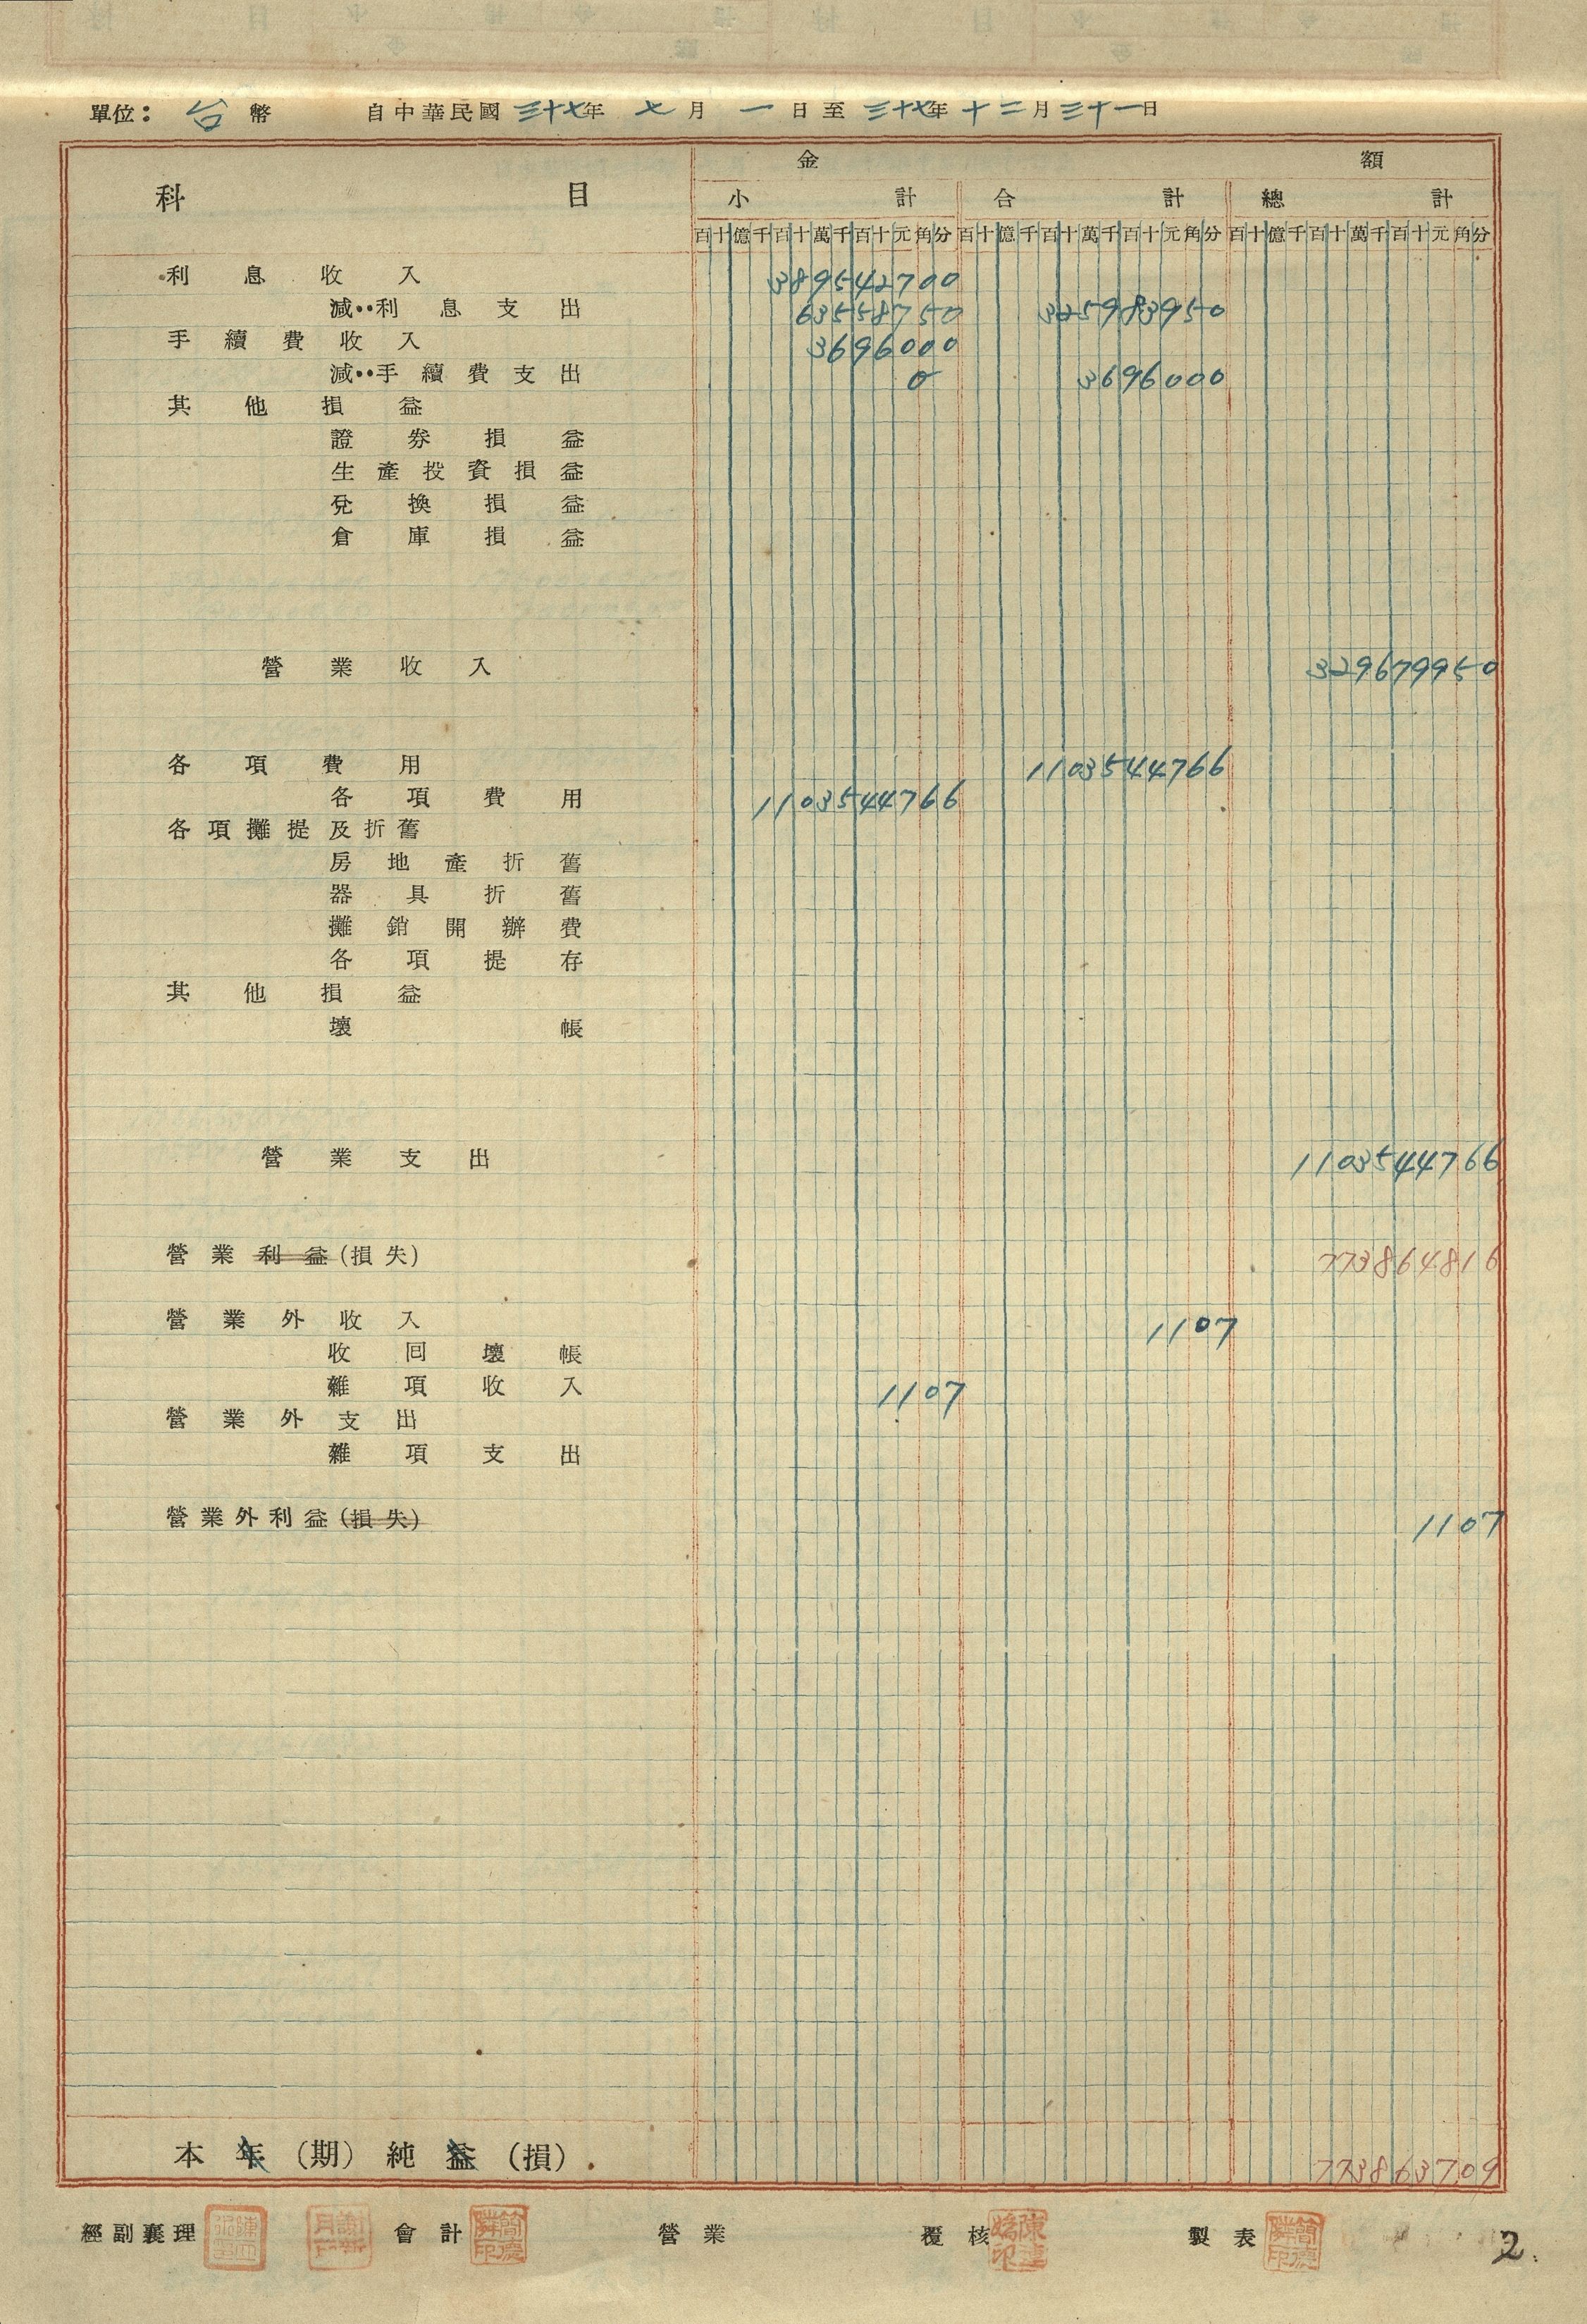 單位：台幣 自中華民國三十七年七月一日至三十七年十二月三十一日
科目 金額
小計 合計 總計
百十億千百十萬千百十元角分 百十億千百十萬千百十元角分 百十億千百十萬千百十元角分
利息收入 389542700
減：利息支出 63558750 325983950
手續費收入 3696000
減：手續費支出 0 3696000
其他損益
證券損益
生產投資損益
兌換損益
倉庫損益
營業收入 329679950
各項費用 1103544766
各項費用 1103544766
各項攤提及折舊
房地產折舊
器具折舊
攤銷開辦費
各項提存
其他損益
壞帳
營業支出 1103544766
營業利益(損失) 773864816
營業外收入 1107
收回壞帳
雜項收入 1107
營業外支出
雜項支出
營業外利益(損失) 1107
本年(期)純益(損) 773863709
經副襄理 會計 營業 覆核 製表 2